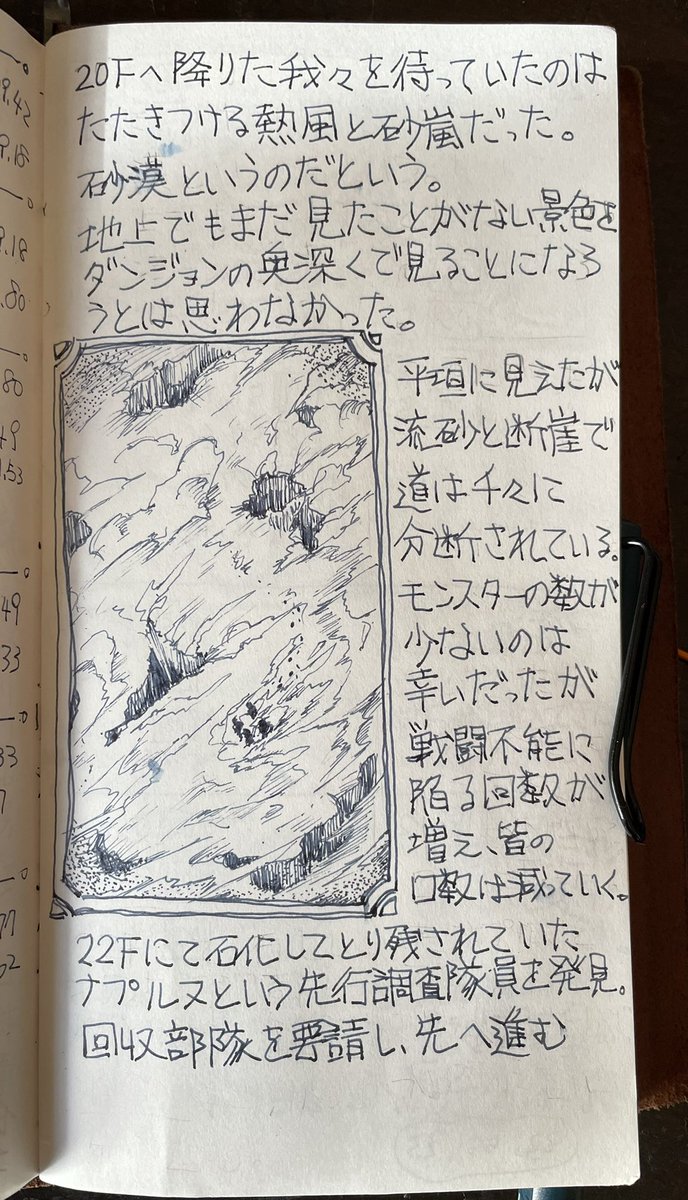 20Fへ降りた我々を待っていたのは
たたきつける熱風と砂嵐だった。
砂漠というのだという。
地上でもまだ見たことがない景色を
ダンジョンの奥深くで見ることになろ
うとは思わなかった。
平垣に見えたが
流砂と断崖で
道は千々に
分断されている。
モンスターの数が
少ないのは
幸いだったが
戦闘不能に
陥る回数が
増え、皆の
口数は減っていく。
22Fにて石化してとり残されていた
ナプルヌという先行調査隊員を発見。
回収部隊を要請し、先へ進む
9.42
9.18
9.18
.80
80
49
.53
49
33
33
7
77
02